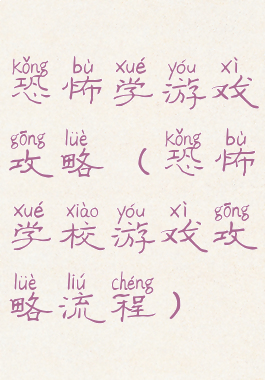 kǒng bù xué yóu xì
恐怖学游戏
gōng lüè kǒng bù
攻略（恐怖
xué xiào yóu xì gōng
学校游戏攻
lüè liú chéng
略流程）